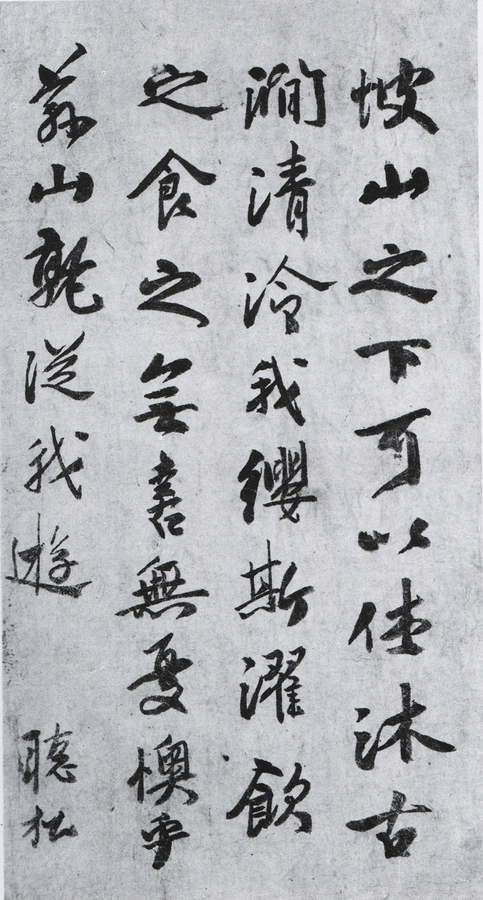 坡山之下可以休沐古
澗清冷我纓斯濯飲
之食之無喜無憂懊乎
茲山孰從我遊
聽松